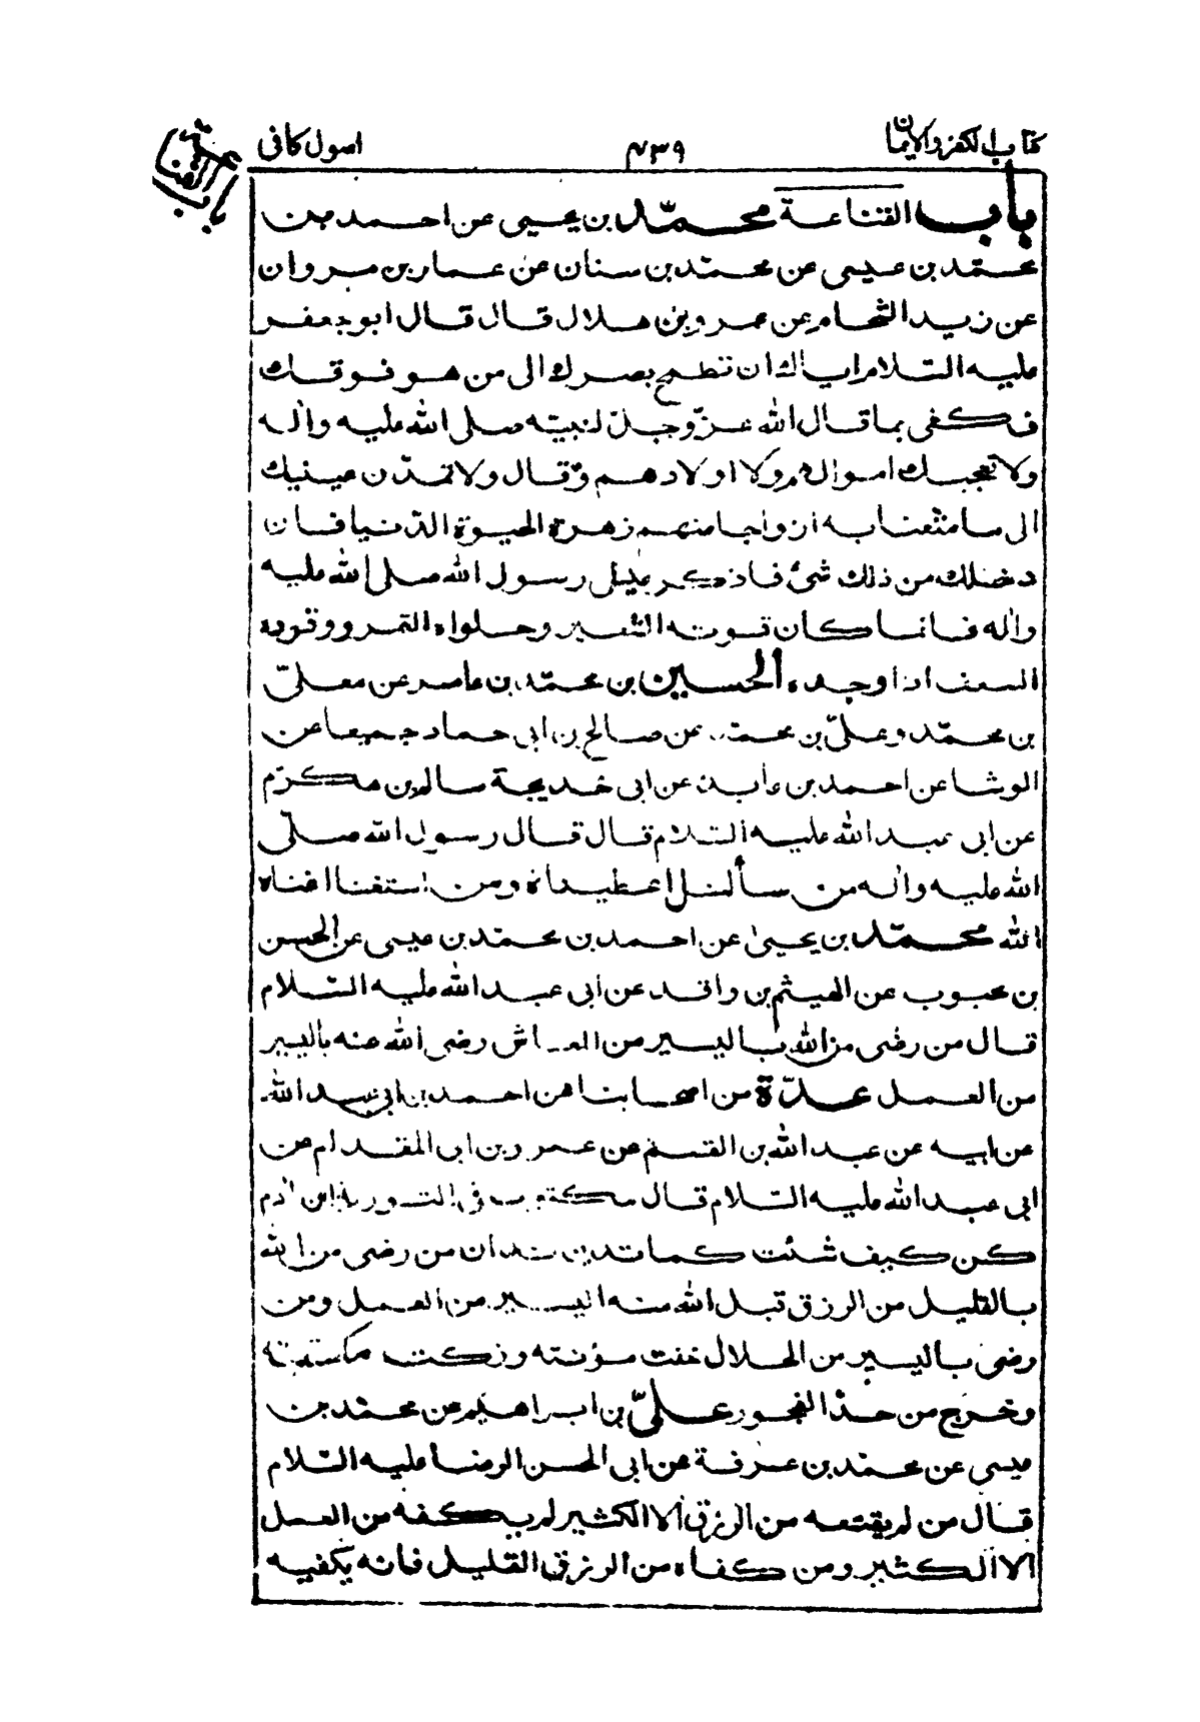 كتاب الكفر والايمان
۴۳۹
اصول كافى
باب القناعة
باب القناعة محمّد بن يحيى عن احمد بن
محمّد بن عيسى عن محمّد بن سنان عن عمار بن مروان
عن زيد الشحام عن عمرو بن هلال قال قال ابو جعفر
عليه السّلام اياك ان تطمح بصرك الى من هو فوقك
فكفى بما قال الله عزّ وجلّ لنبيّه صلى الله عليه واٰله
ولا تعجبك اموالهم ولا اولادهم وقال ولا تمدّن عينيك
الى ما متّعنا به ازواجا منهم زهرة الحيوة الدّنيا فان
دخلك من ذلك شئ فاذكر عيش رسول الله صلى الله عليه
واٰله فانما كان قوته الشعير وحلواه التمر ووقوده
السعف اذا وجده الحسين بن محمّد بن عامر عن معلىّ
بن محمّد وعلىّ بن محمّد عن صالح بن ابى حماد جميعا عن
الوشا عن احمد بن عايذ عن ابى خديجة سالم بن مكرّم
عن ابى عبد الله عليه السّلام قال قال رسول الله صلّى
الله عليه واٰله من سألنا اعطيناه ومن استغنا اغناه
الله محمّد بن يحيىٰ عن احمد بن محمّد بن عيسى عن الحسن
بن محبوب عن الهيثم بن واقد عن ابى عبد الله عليه السّلام
قال من رضى من الله باليسير من المعاش رضى الله عنه باليسير
من العمل عدّة من اصحابنا عن احمد بن ابى عبد الله
عن ابيه عن عبد الله بن القسم عن عمرو بن ابى المقدام عن
ابى عبد الله عليه السّلام قال مكتوب فى التورية ابن اٰدم
كن كيف شئت كما تدين تدان من رضى من الله
بالقليل من الرزق قبل الله منه اليسير من العمل ومن
رضى باليسير من الحلال خفت مؤنته وزكت مكسبته
وخرج من حدّ الفجور علىّ بن ابراهيم عن محمّد بن
عيسى عن محمّد بن عرفة عن ابى الحسن الرضا عليه السّلام
قال من لم يقنعه من الرزق الا الكثير لم يكفه من العمل
الا الكثير ومن كفاه من الرزق القليل فانه يكفيه